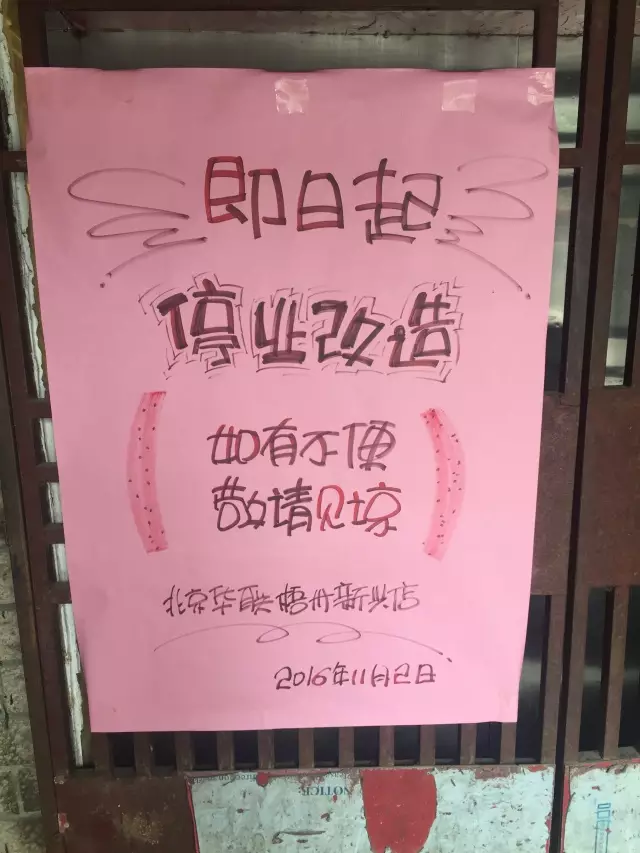 即日起
停业改造
如有不便
敬请见谅
北京华联梧州新兴店
2016年11月2日
NOTICE: